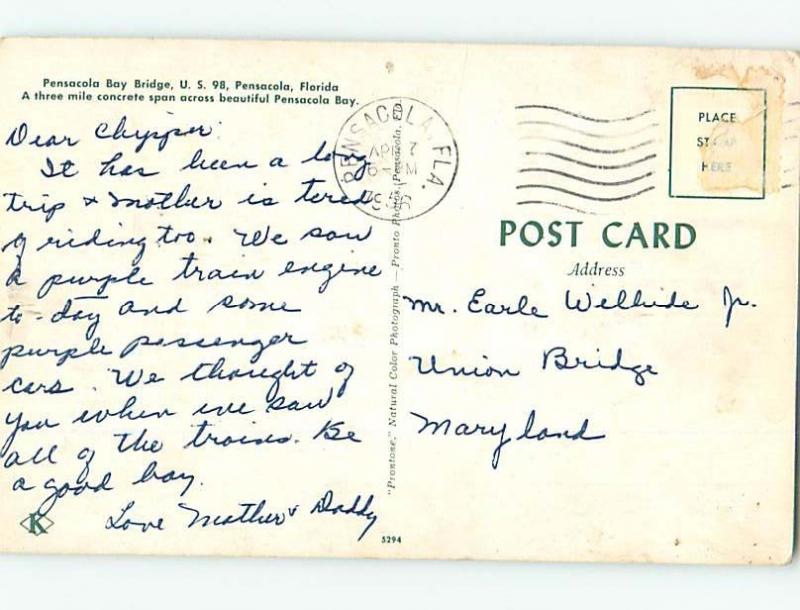 Pensacola Bay Bridge, U. S. 98, Pensacola, Florida
A three mile concrete span across beautiful Pensacola Bay.
Dear Chipper:
It has been a long
trip & Mother is tered
of riding too. We saw
a purple train engine
to-day and some
purple passenger
cars. We thought of
you when we saw
all of the trains. Be
a good boy.
Love Mother & Daddy
K
5294
"Prontone," Natural Color Photograph — Pronto Photos, Pensacola,
PENSACOLA, FLA.
7
PM
PLACE
STAMP
HERE
POST CARD
Address
Mr. Earle Welhide Jr.
Union Bridge
Maryland